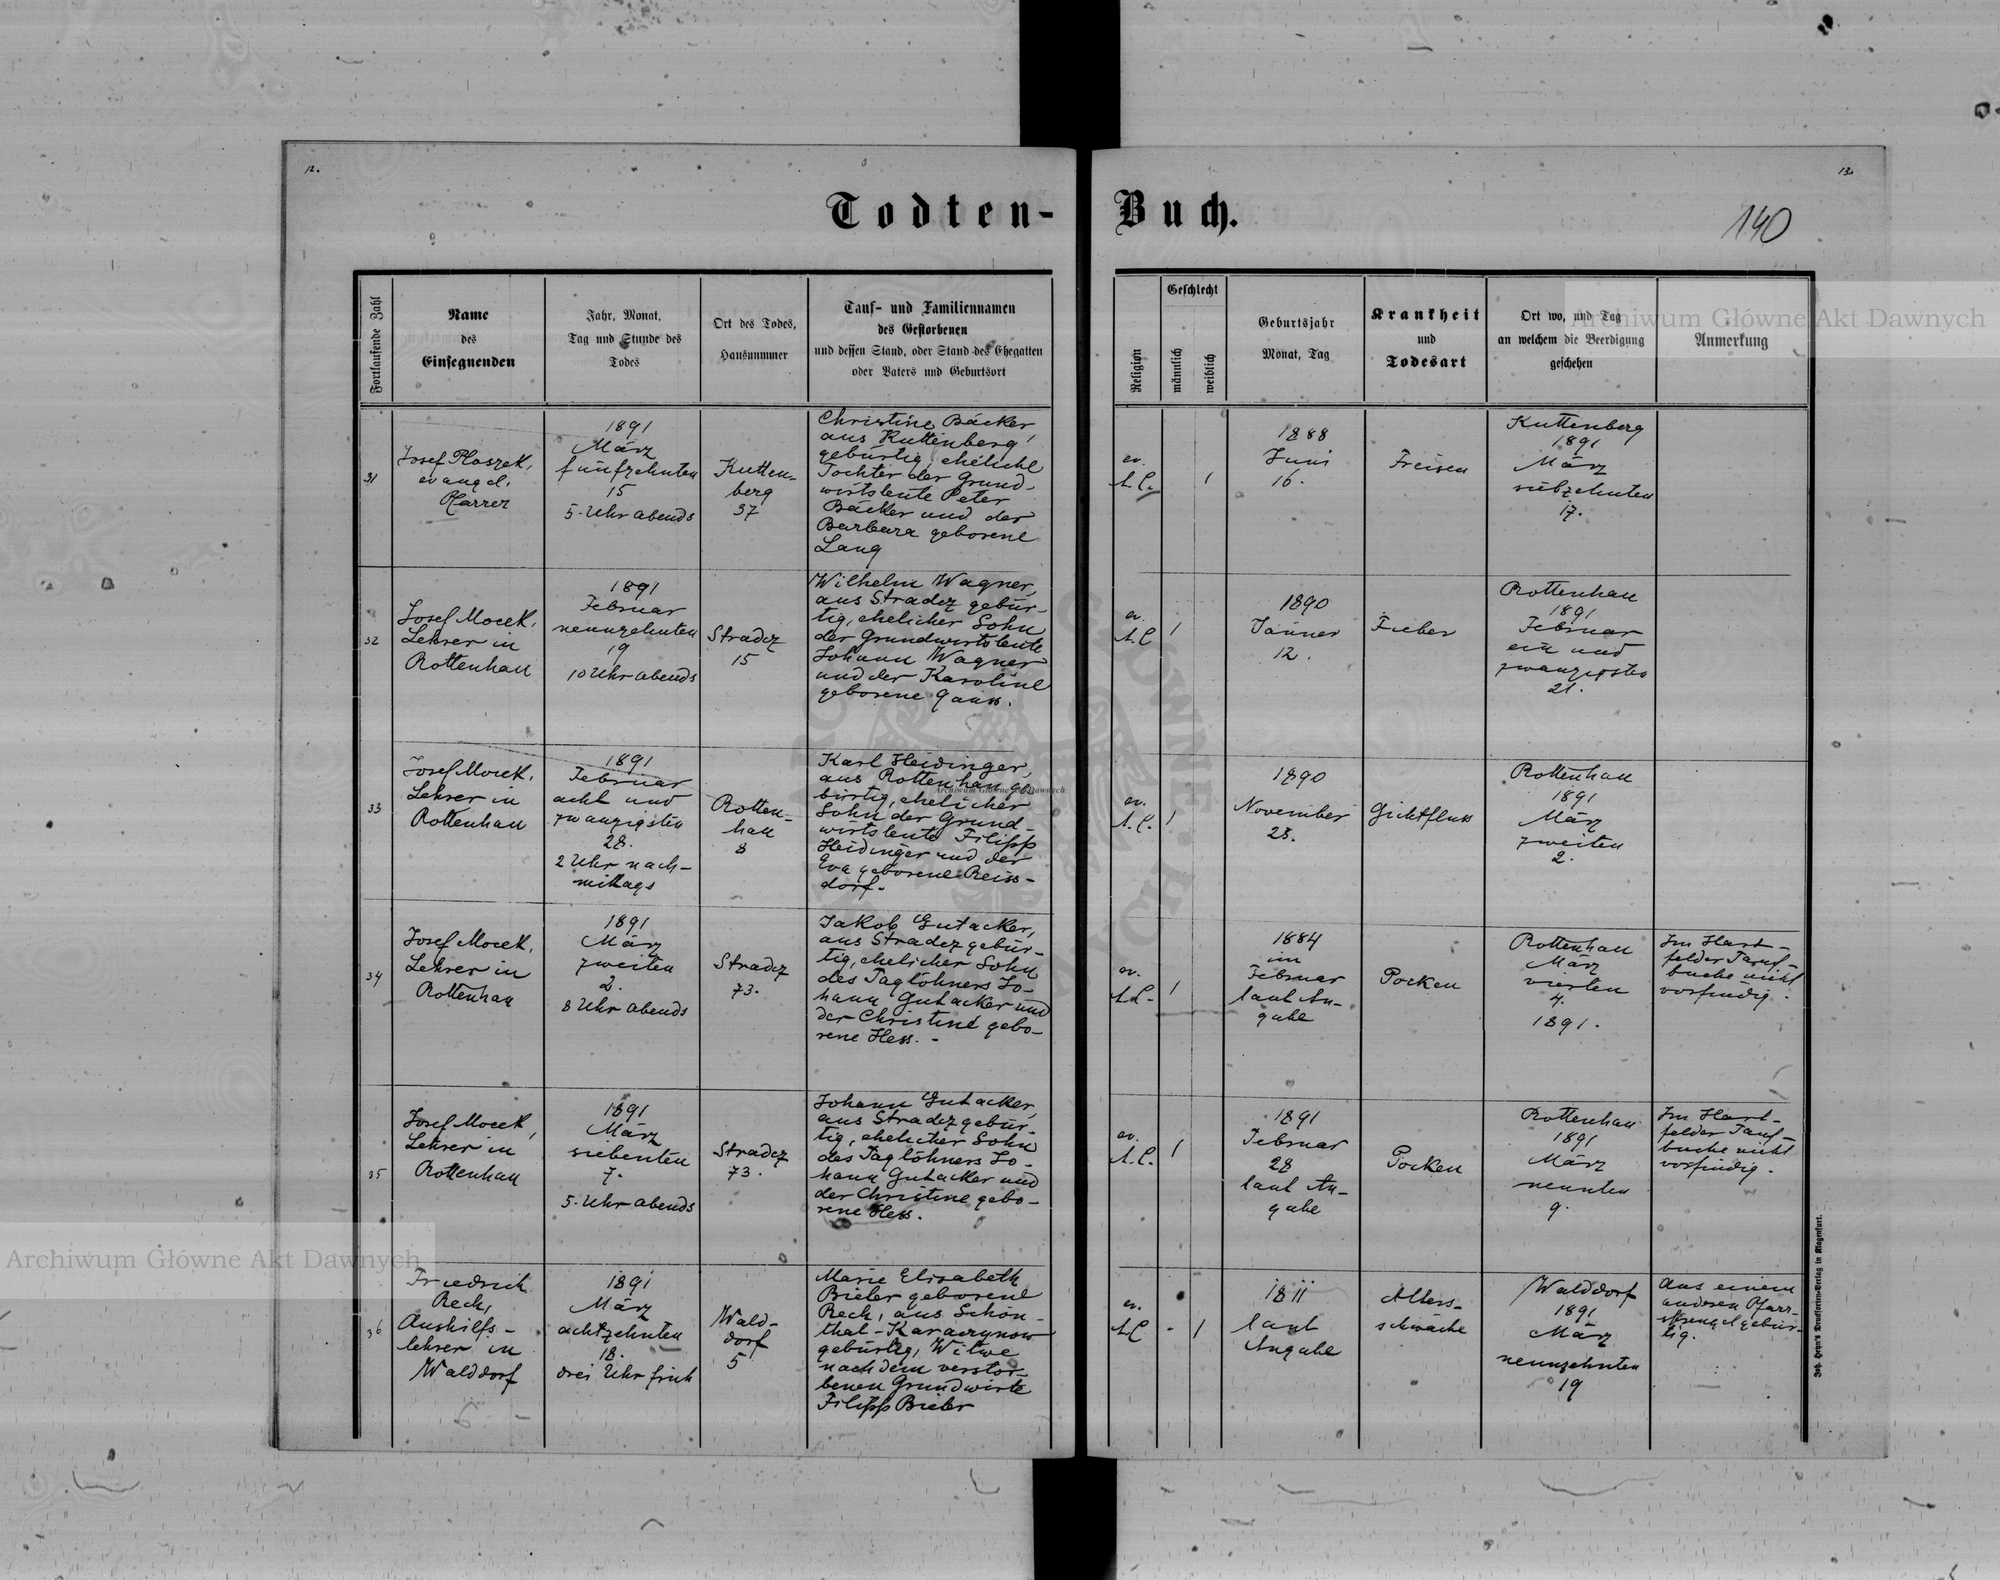 12.
13.
Todten-Buch.
140
Fortlaufende Zahl
Name
des
Einsegnenden
Jahr, Monat,
Tag und Stunde des
Todes
Ort des Todes,
Hausnummer
Tauf- und Familiennamen
des Gestorbenen
und dessen Stand, oder Stand des Ehegatten
oder Vaters und Geburtsort
Religion
Geschlecht
männlich
weiblich
Geburtsjahr
Monat, Tag
Krankheit
und
Todesart
Ort wo, und Tag
an welchem die Beerdigung
geschehen
Anmerkung
31
Josef Ploszek,
evangel.
Pfarrer
1891
März
fünfzehnten
15
5. Uhr abends
Kutten-
berg
37
Christine Bäcker
aus Kuttenberg
gebürtig, eheliche
Tochter der Grund-
wirtsleute Peter
Bäcker und der
Barbara geborene
Lang
ev.
A.C.
1
1888
Juni
16.
Freisen
Kuttenberg
1891
März
siebzehnten
17.
32
Josef Mocek,
Lehrer in
Rottenhan
1891
Februar
neunzehnten
19
10 Uhr abends
Stradcz
15
Wilhelm Wagner,
aus Stradcz gebür-
tig, ehelicher Sohn
der Grundwirtsleute
Johann Wagner
und der Karoline
geborene Gauss.
ev.
A.C
1
1890
Jänner
12.
Fieber
Rottenhan
1891
Februar
ein und
zwanzigsten
21.
33
Josef Mocek,
Lehrer in
Rottenhan
1891
Februar
acht und
zwanzigsten
28.
2 Uhr nach-
mittags
Rotten-
han
8
Karl Heidinger,
aus Rottenhan ge-
bürtig, ehelicher
Sohn der Grund-
wirtsleute Filipp
Heidinger und der
Eva geborene Reiss-
dorf.
ev.
A.C.
1
1890
November
23.
Gichtfluss
Rottenhan
1891
März
zweiten
2.
34
Josef Mocek,
Lehrer in
Rottenhan
1891
März
zweiten
2.
8 Uhr abends
Stradcz
73.
Jakob Gutacker,
aus Stradcz gebür-
tig, ehelicher Sohn
des Taglöhners Jo-
hann Gutacker und
der Christine gebo-
rene Hess. -
ev.
A.C.
1
1884
im
Februar
laut An-
gabe
Pocken
Rottenhan
März
vierten
4.
1891.
Im Hart-
felder Tauf-
buche nicht
vorfindig.
35
Josef Mocek,
Lehrer in
Rottenhan
1891
März
siebenten
7.
5. Uhr abends
Stradcz
73.
Johann Gutacker,
aus Stradcz gebür-
tig, ehelicher Sohn
des Taglöhners Jo-
hann Gutacker und
der Christine gebo-
rene Hess.
ev.
A.C.
1
1891
Februar
28
laut An-
gabe
Pocken
Rottenhan
1891
März
neunten
9.
Im Hart-
felder Tauf-
buche nicht
vorfindig.
36
Friedrich
Rech,
Aushilfs-
lehrer in
Walddorf
1891
März
achtzehnten
18.
drei Uhr früh
Wald-
dorf
5
Marie Elisabeth
Bieler geborene
Rech, aus Schön-
thal-Karaczynow
gebürtig, Witwe
nach dem verstor-
benen Grundwirte
Filipp Bieler
ev.
AC
-
1
1811
laut
Angabe
Alters-
schwäche
Walddorf
1891
März
neunzehnten
19
Aus einem
anderen Pfarr-
sprengel gebür-
tig.
Joh. Heyn's Drucksorten-Verlag in Klagenfurt.
Archiwum Główne Akt Dawnych
Archiwum Główne Akt Dawnych
Archiwum Główne Akt Dawnych